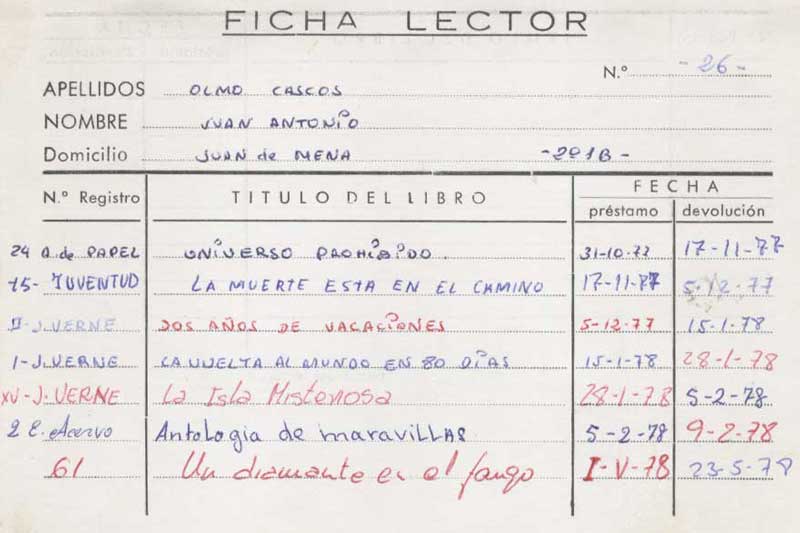 FICHA LECTOR
N.º -26-
APELLIDOS OLMO CASCOS
NOMBRE JUAN ANTONIO
Domicilio JUAN de MENA -2º1B-
N.º Registro TITULO DEL LIBRO FECHA
préstamo devolución
24 A. de PAPEL UNIVERSO PROHIBIDO. 31-10-77 17-11-77
15- JUVENTUD LA MUERTE ESTA EN EL CAMINO 17-11-77 5-12-77
II-J.VERNE DOS AÑOS DE VACACIONES 5-12-77 15-1-78
I-J.VERNE LA VUELTA AL MUNDO EN 80 DÍAS 15-1-78 28-1-78
XV-J.VERNE La Isla Misteriosa 28-1-78 5-2-78
2 E. Acervo Antologia de maravillas 5-2-78 9-2-78
61 Un diamante en el fango I-V-78 23-5-78